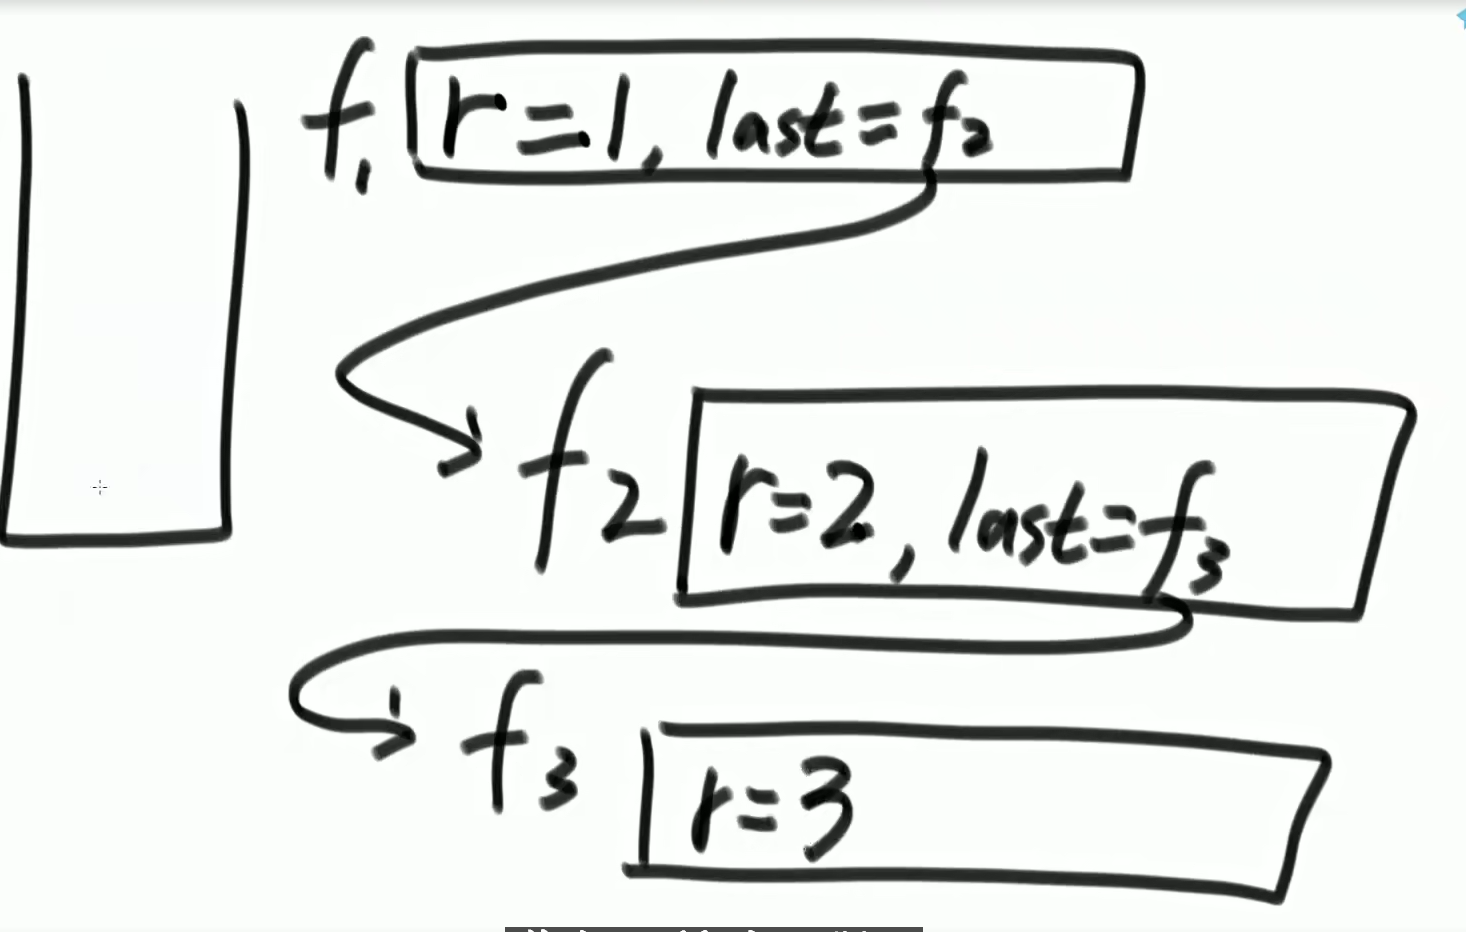 f1 r=1, last=f2
f2 r=2, last=f3
f3 r=3